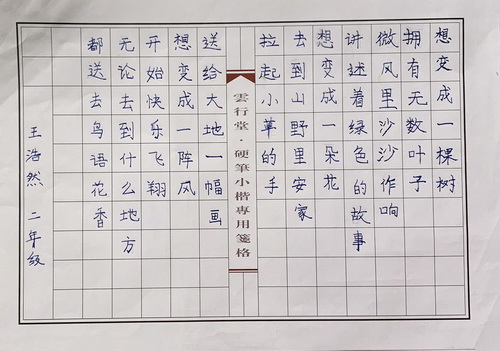 想变成一棵树
拥有无数叶子
微风里沙沙作响
讲述着绿色的故事
想变成一朵花
去到山野里安家
拉起小草的手
雲行堂·硬筆小楷專用箋格
送给大地一幅画
想变成一阵风
开始快乐飞翔
无论去到什么地方
都送去鸟语花香
王浩然 二年级